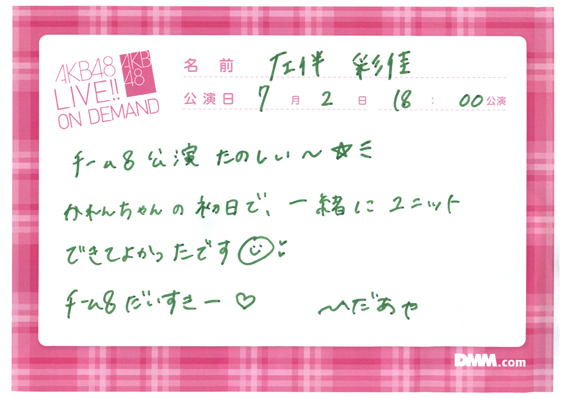 AKB48
LIVE!!
ON DEMAND
AKB
48
名前 左伴 彩佳
公演日 7月2日 18:00公演
チーム8 公演 たのしい〜☆
かれんちゃんの初日で、一緒にユニット
できてよかったです
チーム8 だいすきー♡
〜へだあや
DMM.com